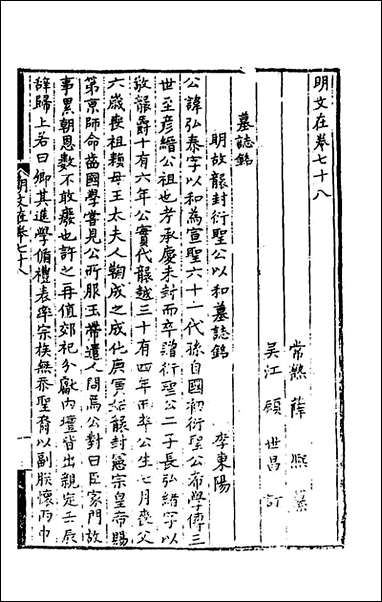 明文在卷七十八
常熟薛熙纂
吳江顧世昌訂
墓誌銘
明故襲封衍聖公以和墓誌銘 李東陽
公諱弘泰字以和為宣聖六十一代孫自國初衍聖公希學傳三
世至彦縉公祖也考承慶未封而卒贈衍聖公二子長弘緒字以
敬襲爵十有六年公實代襲越三十有四年而卒公生七月喪父
六歲喪祖賴母王太夫人鞠成之成化庚寅始襲封憲宗皇帝賜
第京師命齒國學嘗見公所服玉帶遣人問焉公對曰臣家門故
事累朝恩數不敢廢也許之再值郊祀分獻内壇皆出親定壬辰
辭歸上若曰卿其進學脩禮表率宗族無忝聖裔以副朕懷丙申
明文在卷七十八
一